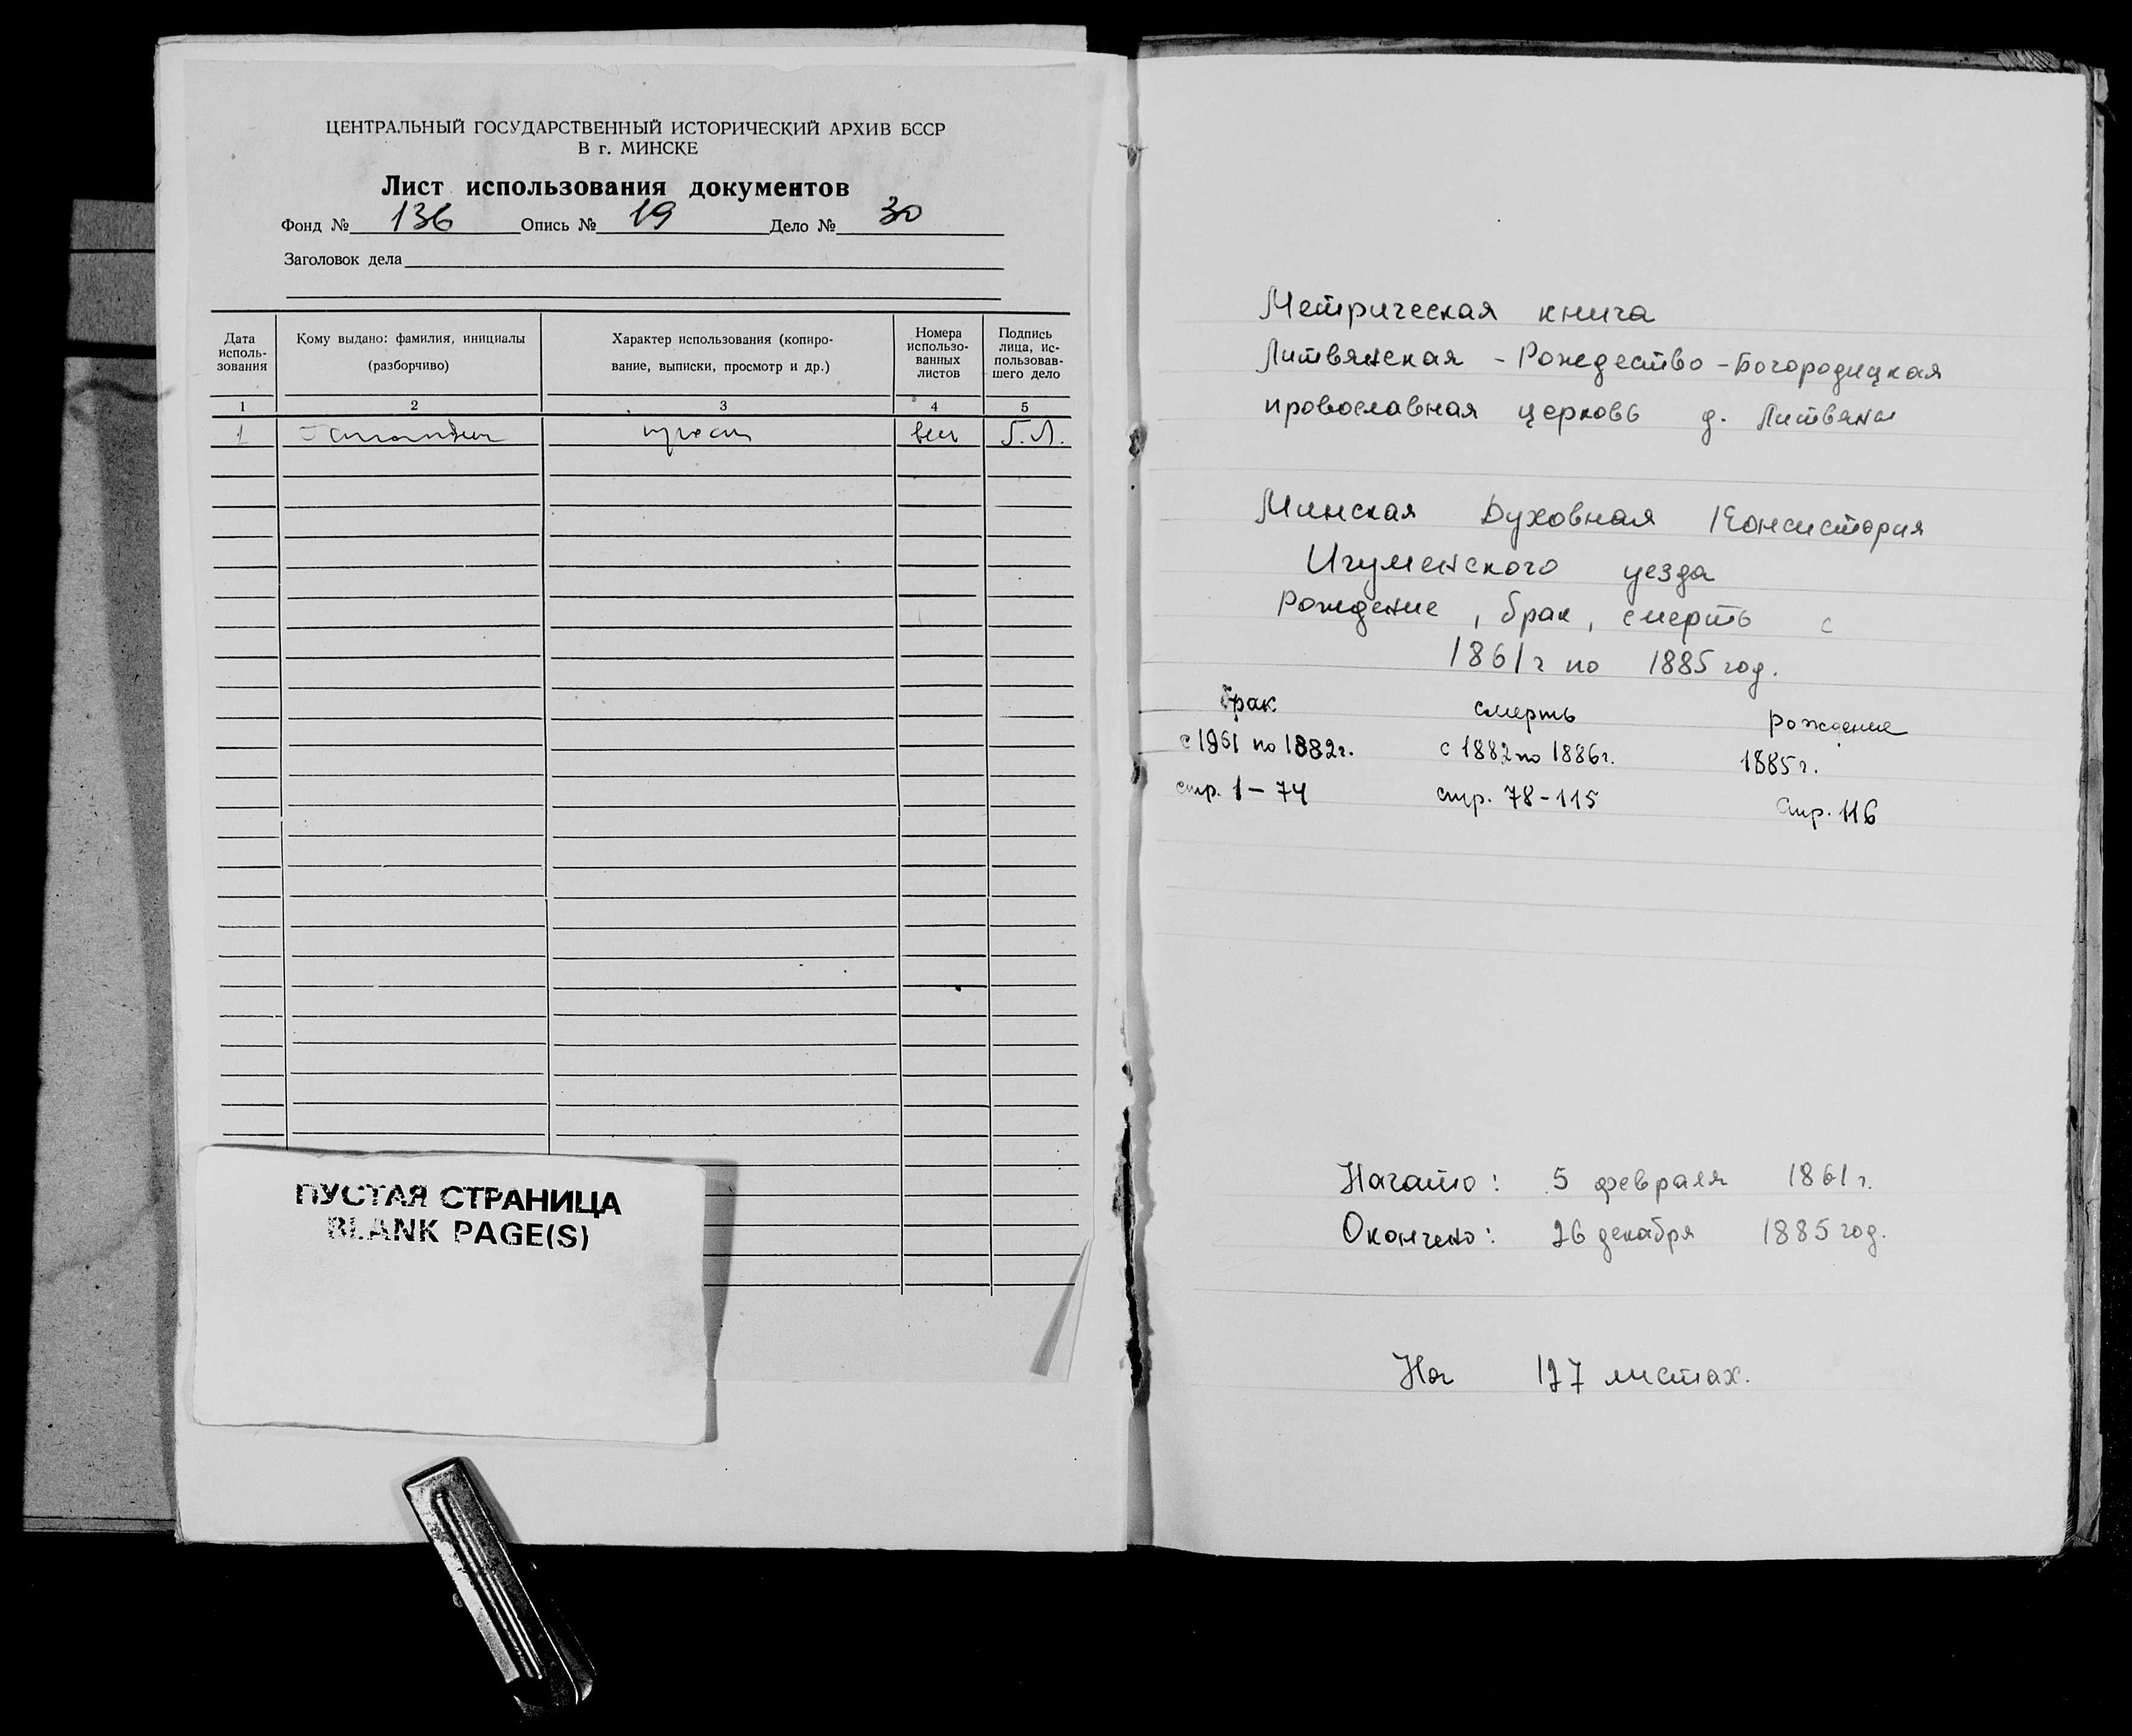 ЦЕНТРАЛЬНЫЙ ГОСУДАРСТВЕННЫЙ ИСТОРИЧЕСКИЙ АРХИВ БССР
В г. МИНСКЕ
Лист использования документов
Фонд № 136 Опись № 19 Дело № 30
Заголовок дела
Дата исполь-зования
Кому выдано: фамилия, инициалы
(разборчиво)
Характер использования (копиро-
вание, выписки, просмотр и др.)
Номера
использо-
ванных
листов
Подпись
лица, ис-
пользовав-
шего дело
1 2 3 4 5
1 все Г.Л.
ПУСТАЯ СТРАНИЦА
BLANK PAGE(S)
Метрическая книга
Литвянская - Рождество - Богородицкая
провославная церковь д. Литвяны
Минская Духовная Консистория
Игуменского уезда
Рождение, брак, смерть с
1861 г по 1885 год.
брак смерть рождение
с 1961 по 1882 г. с 1882 по 1886 г. 1885 г.
стр. 1 - 74 стр. 78 - 115 стр. 116
Начато: 5 февраля 1861 г.
Окончено: 26 декабря 1885 год.
На листах.